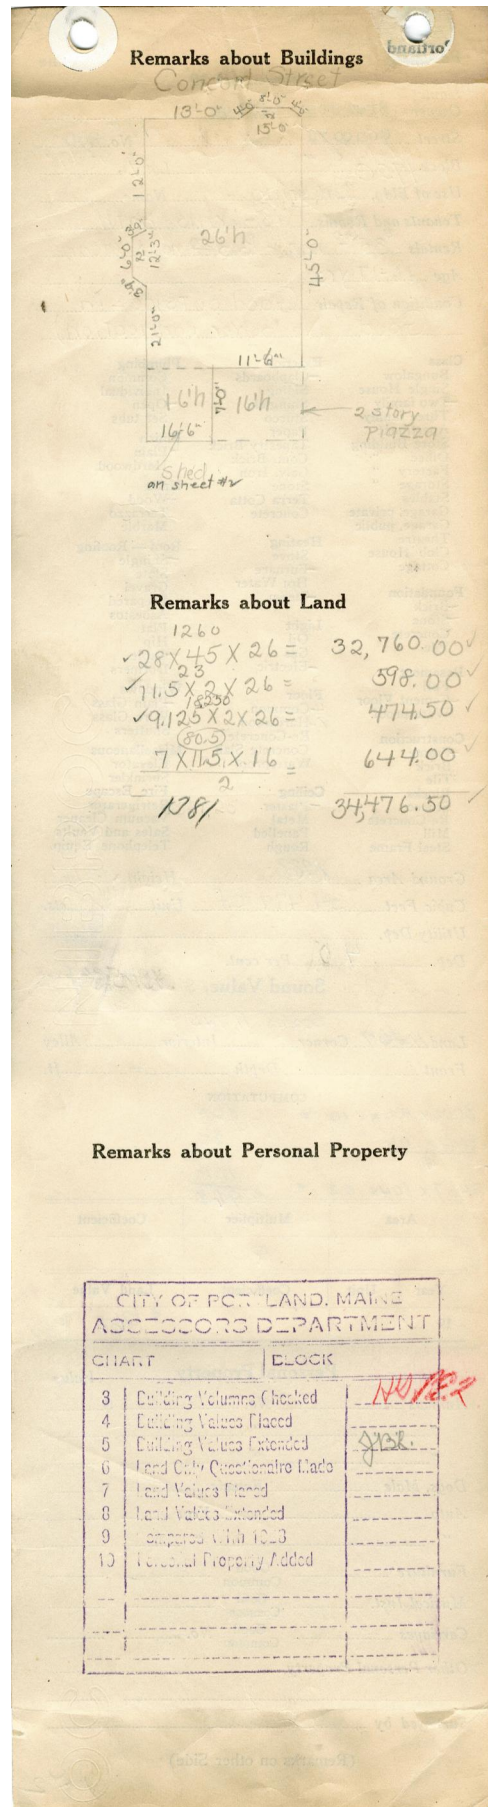 Remarks about Buildings
Concord Street
13'-0" 4'-0" 8'-0" 4'-0"
2
15'-0"
12'-0"
26'h
6'-0"
12'-3"
45'-0"
21'-0"
11'-6"
16'h 7'-0" 16'h
2 story
Piazza
16'-6"
Shed
on sheet #2
Remarks about Land
1260
✓28 X 45 X 26 = 32,760.00 ✓
23
✓11.5 X 2 X 26 = 598.00 ✓
18250
✓9.125 X 2 X 26 = 474.50 ✓
(80.5)
7 X 11.5 X 16 = 644.00 ✓
2
1381 34,476.50 ✓
Remarks about Personal Property
CITY OF PORTLAND, MAINE
ASSESSORS DEPARTMENT
CHART BLOCK
3 Building Volumes Checked
4 Building Values Placed
5 Building Values Extended
6 Land Only Questionaire Made
7 Land Values Placed
8 Land Values Extended
9 Compared With
10 Personal Property Added